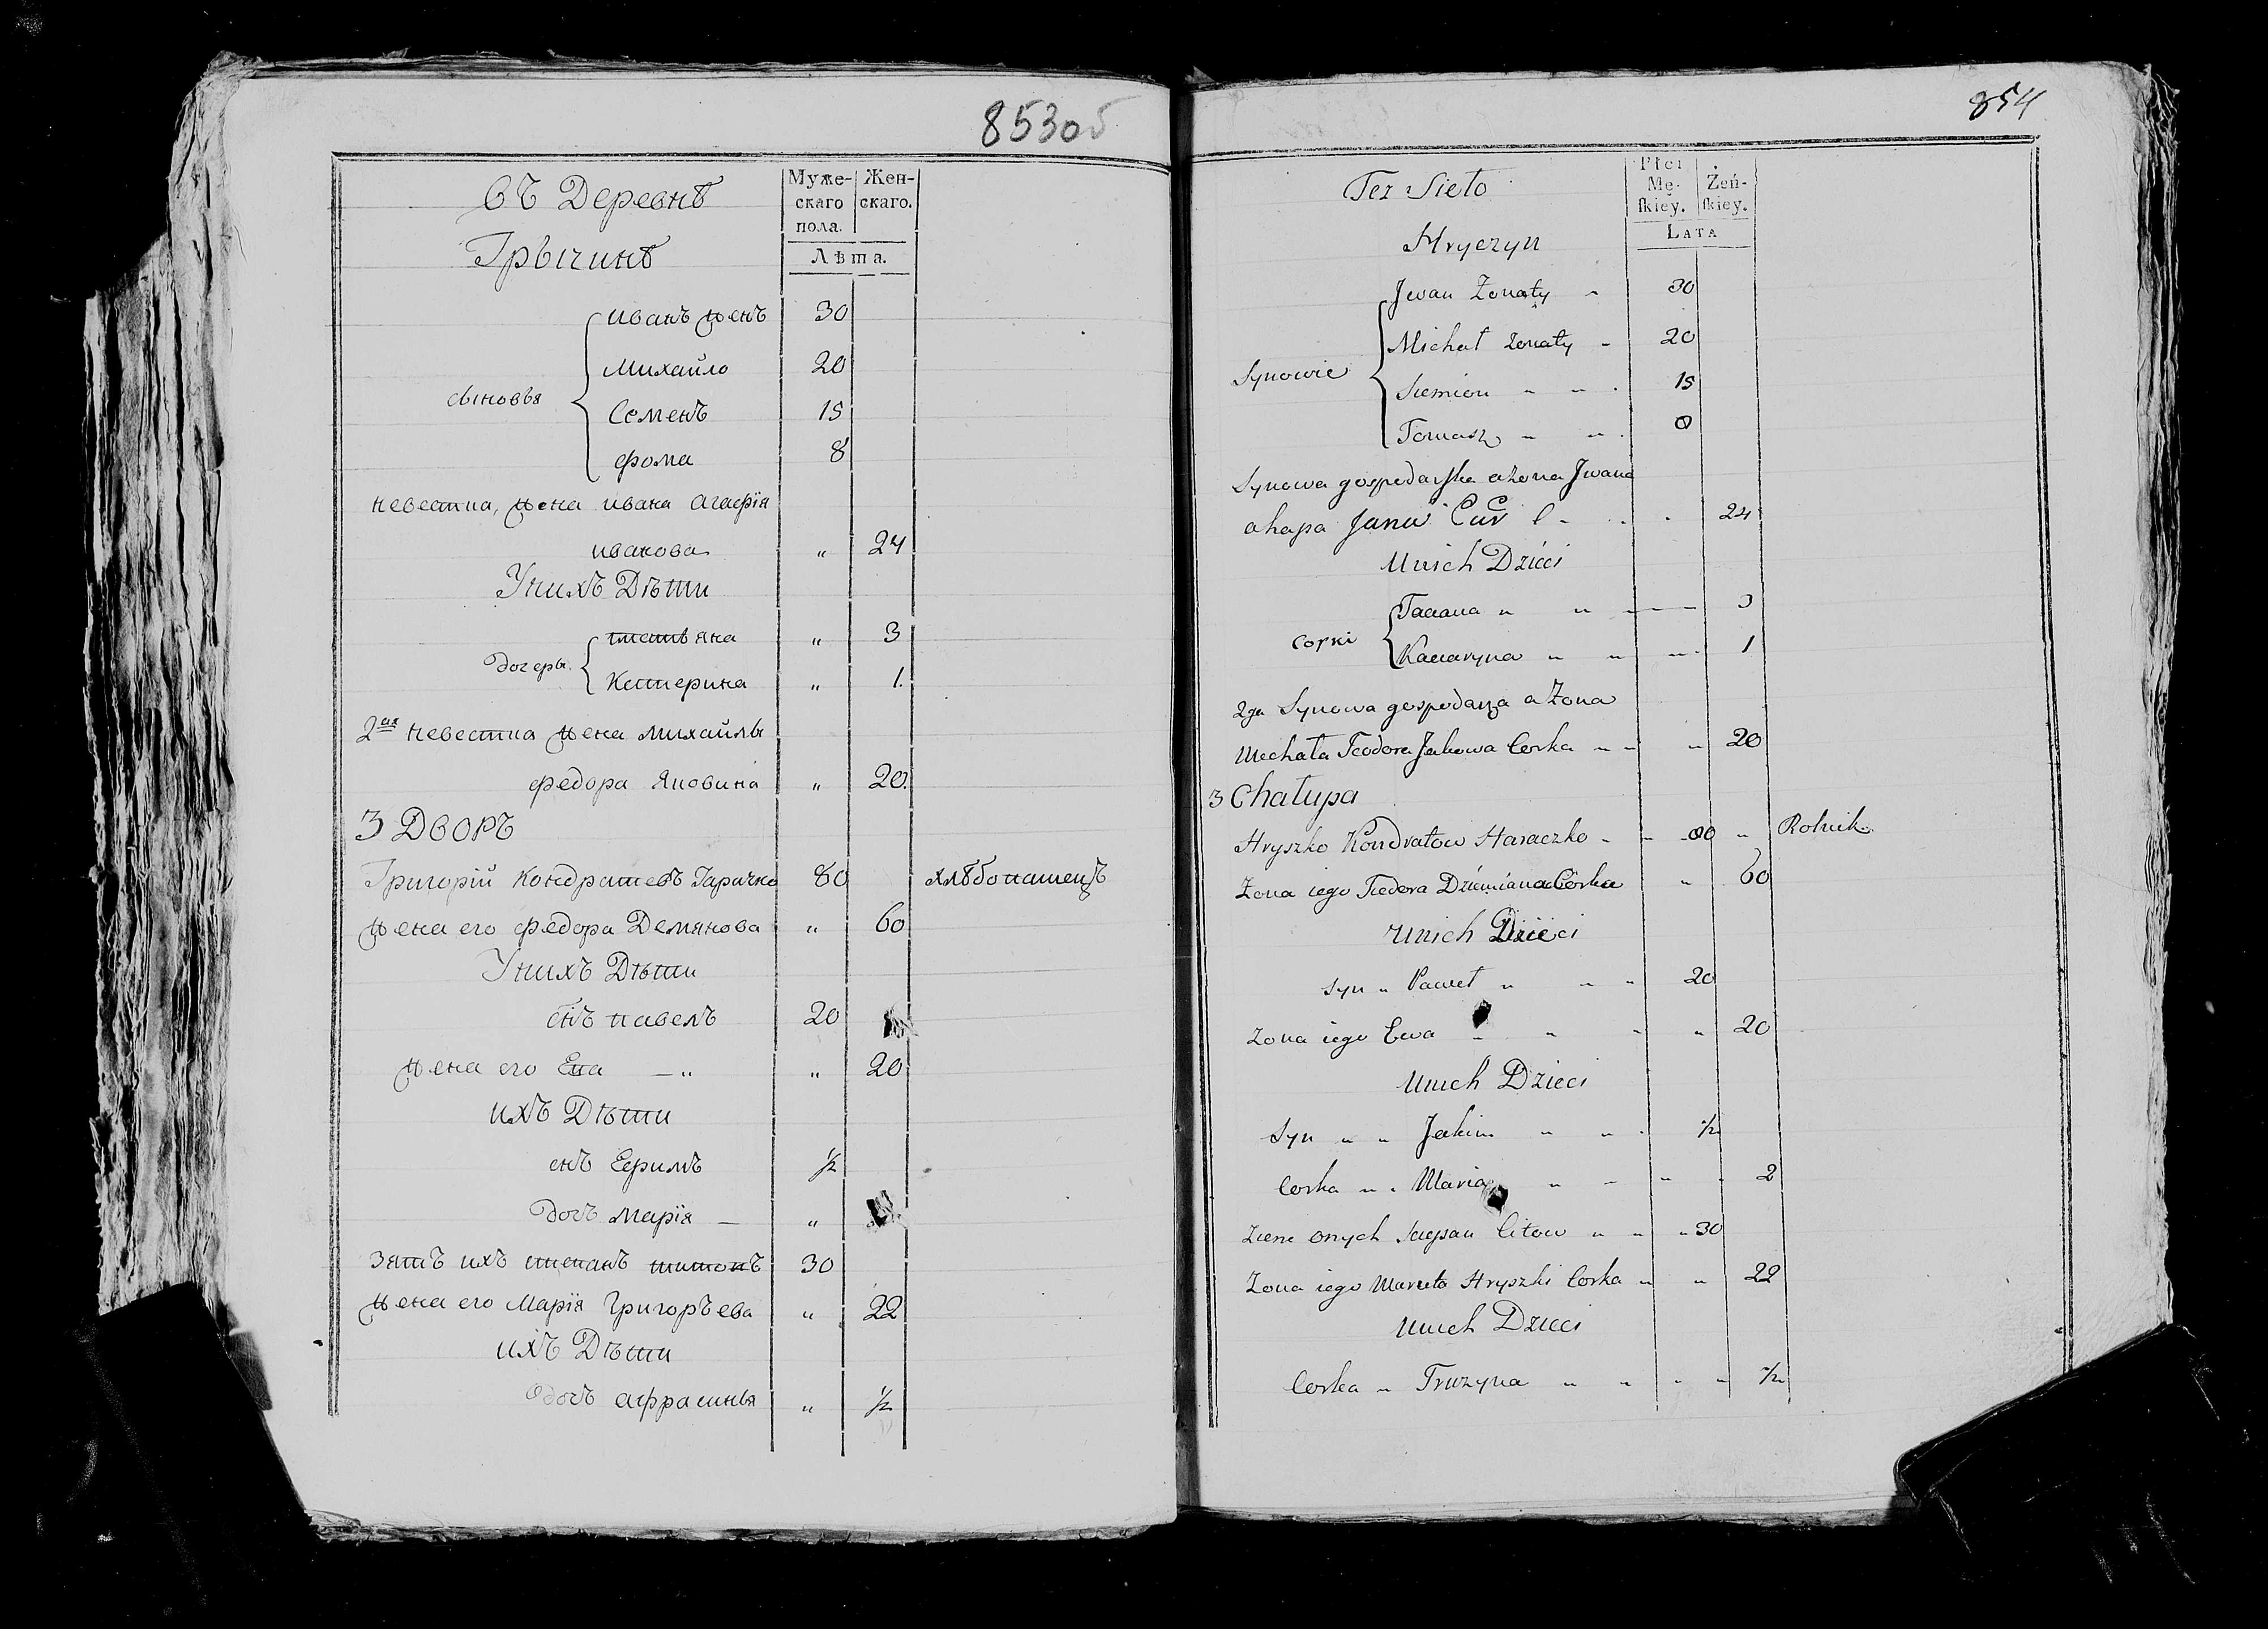 853об
Въ Деревнѣ
Муже-
скаго
пола.
Жен-
скаго.
Грычинѣ
Лѣта.
сыновья
Иванъ жен‍ъ 30
Михайло 20
Семенъ 15
фома 8
невестка, жена ивана Агафїя
иванова „ 24
Унихъ Дѣти
Дочеры
татьяна „ 3
Катерина „ 1.
2ая невестка жена михайлы
федора Яковина „ 20.
3 Дворъ
Григорїй Кондратевъ Гарачко 80 хлѣбопашецъ
жена его федора Демянова „ 60
Унихъ Дѣти
снъ павелъ 20
жена его Ева — „ „ 20
ихъ Дѣти
снъ Ефимъ ½
дочъ марїя — „
зятъ ихъ степанъ титовъ 30
жена его Марїя Григоръева „ 22
ихъ Дѣти
дочъ афрасинья „ ½
854
Też Sieło
Płci
Mę-
skiey.
Żeń-
skiey.
Hryczyn
Lata
Synowie
Jwan Żonaty „ 30
Michał żonaty „ 20
Siemion „ „ 15
Tomasz „ „ 8
Synowa gospodarska a żona Jwana
ahapa Jana Cór 24
Unich Dzieci
Corki
Taciana „ „ 3
Kacaryna „ „ 1
2ga Synowa gospodarza a Żona
Mechała Teodora Jakowa Corka „ „ „ 20
3 Chałupa
Hryszko Kondratow Haraczko „ 80 „ Rolnik.
Żona iego Fiedora Dziemiana Córka „ 60
Unich Dzieci
Syn „ Paweł „ „ „ 20
Żona iego Ewa „ „ „ „ 20
Unich Dzieci
Syn „ „ Jakim „ „ ½
Corka „ „ Maria „ „ „ 2
Zienc onych Sciepan Citow „ „ „ 30
Żona iego Maruta Hryszki Corka „ „ 22
Unich Dzieci
Corka „ Pruzyna „ „ „ „ ½